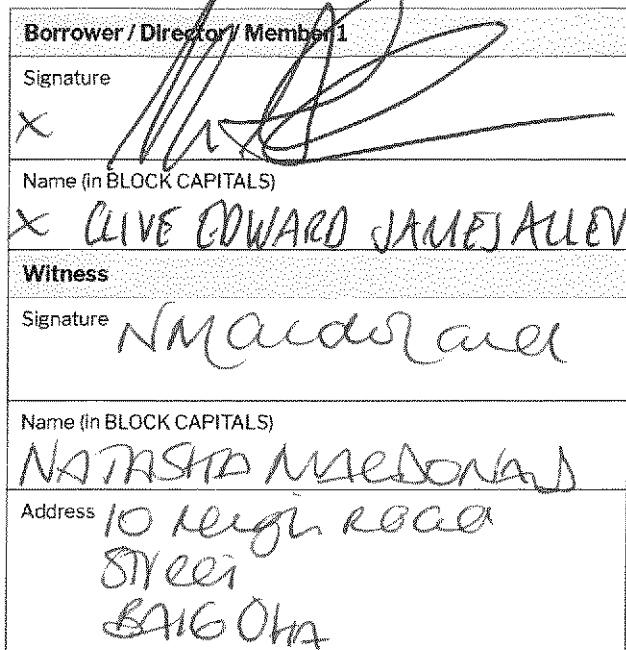 Borrower / Director / Member 1
Signature
X
Name (in BLOCK CAPITALS)
X CLIVE EDWARD JAMES ALLEN
Witness
Signature NMacdonald
Name (in BLOCK CAPITALS)
NATASHA MACDONALD
Address 10 Leigh Road
Street
BA16 0HA